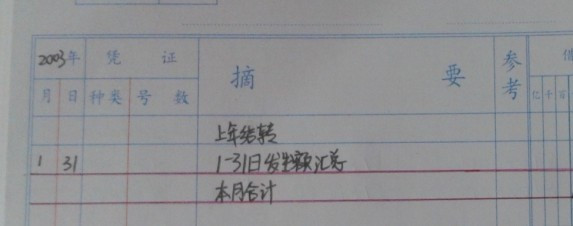 2003年 凭 证 摘 要 参考 借
月 日 种类 号 数 亿 千 百
上年结转
1 31 1-31日发生额汇总
本月合计